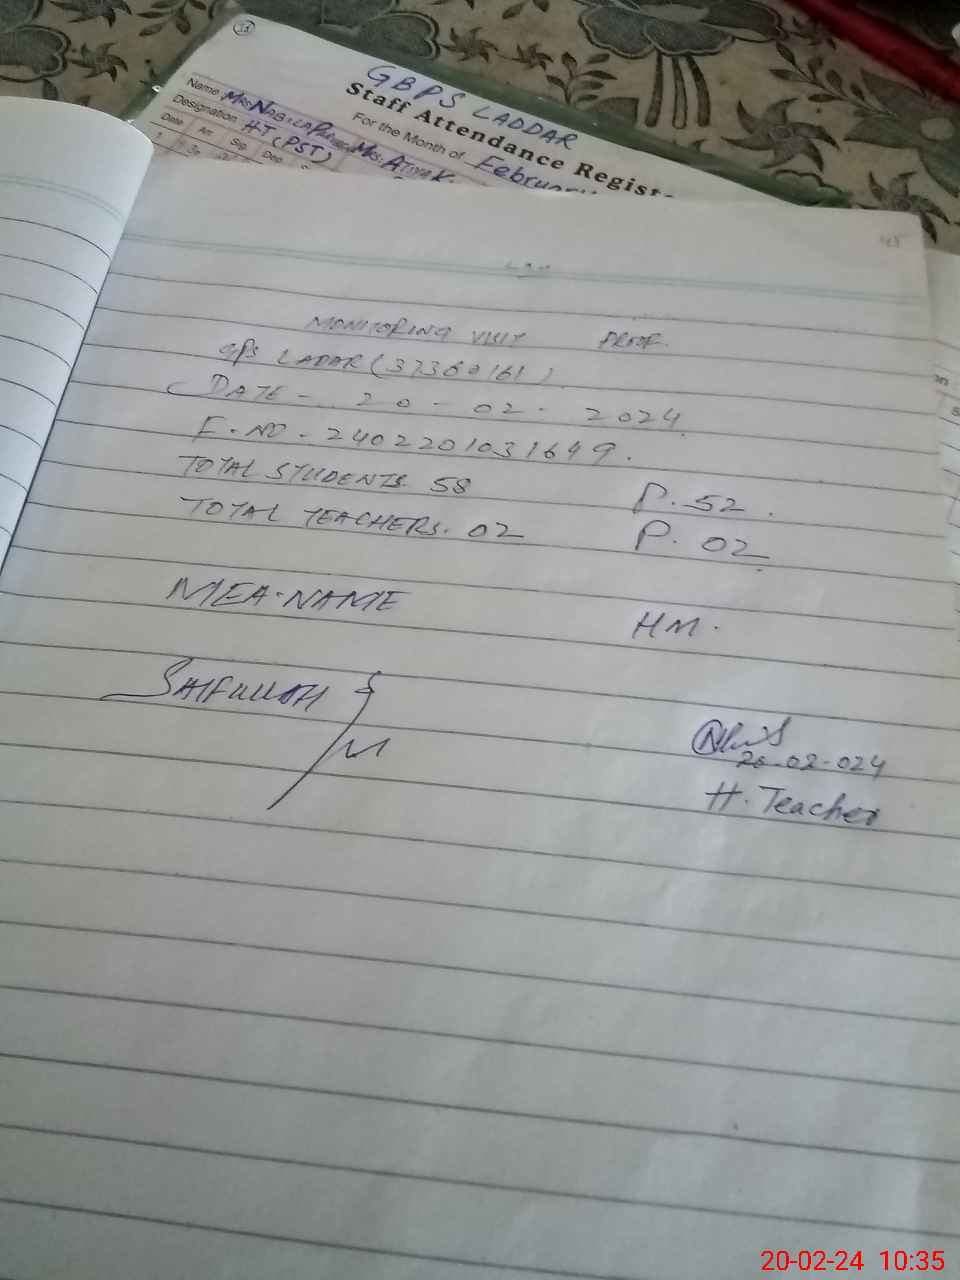 33
GBPS LADDAR
Staff Attendance Regist
For the Month of February
Name Mrs NABILA Mrs: ATIYA K.
Designation HT (PST)
Date Arr Sig Dep
1
MONITORING VISIT PROOF.
GPS LADAR (37360161).
DATE - 20 - 02 - 2024
F. NO - 2402201031649.
TOTAL STUDENTS. 58 P. 52.
TOTAL TEACHERS. 02 P. 02
MEA. NAME HM.
SAIFULLAH
20-02-024
H. Teacher
20-02-24 10:35